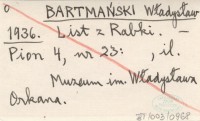 0
BARTMAŃSKI Władysław
1936. List z Rabki. –
Pion 4, nr 23: , il.
Muzeum im. Władysława
Orkana.